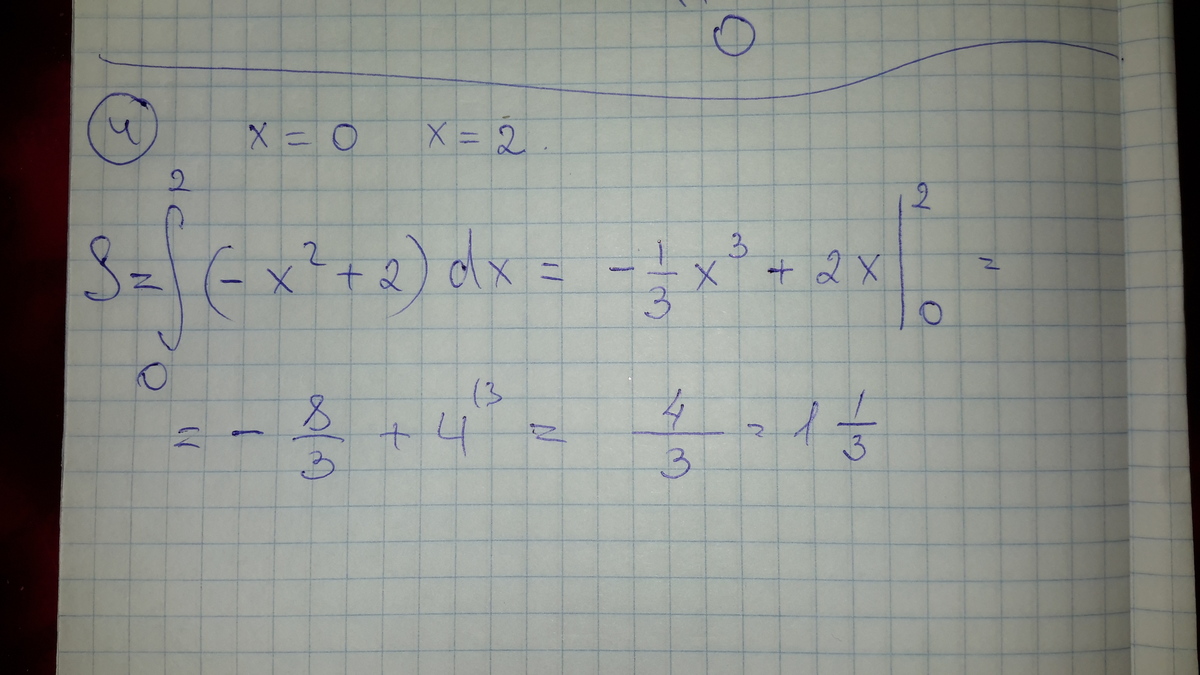 0
4 x = 0 x = 2.
S = ∫₀² (- x² + 2) dx = - 1/3 x³ + 2x |₀² =
= - 8/3 + 4⁽³ = 4/3 = 1 1/3